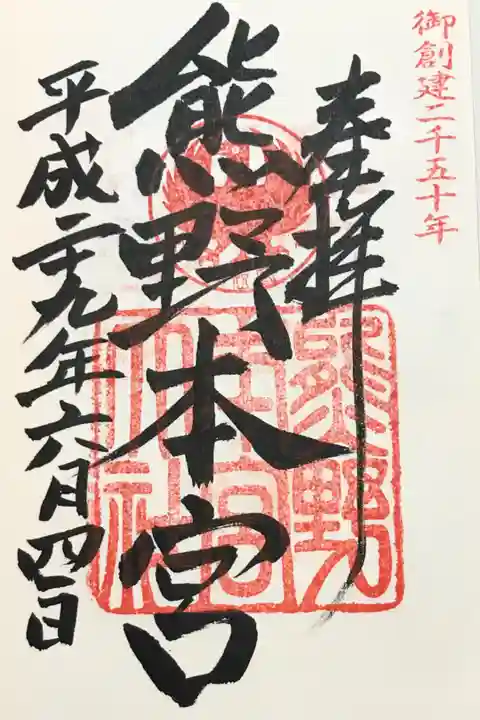 御創建二千五十年
奉拝
熊野本宮
平成二十九年六月四日
熊野
本宮
大社